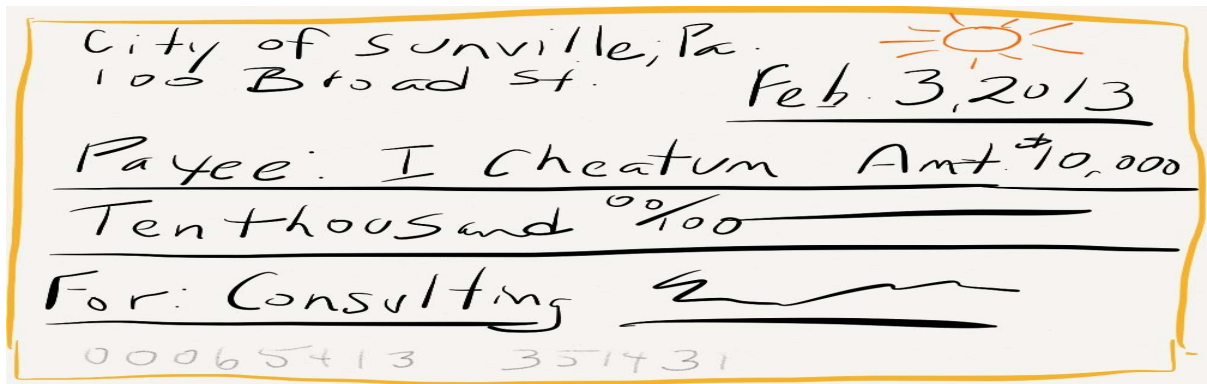 City of Sunville, Pa.
100 Broad St.
Feb. 3, 2013
Payee: I Cheatum Amt. $10,000
Ten thousand 00/100
For: Consulting
00065413 351431